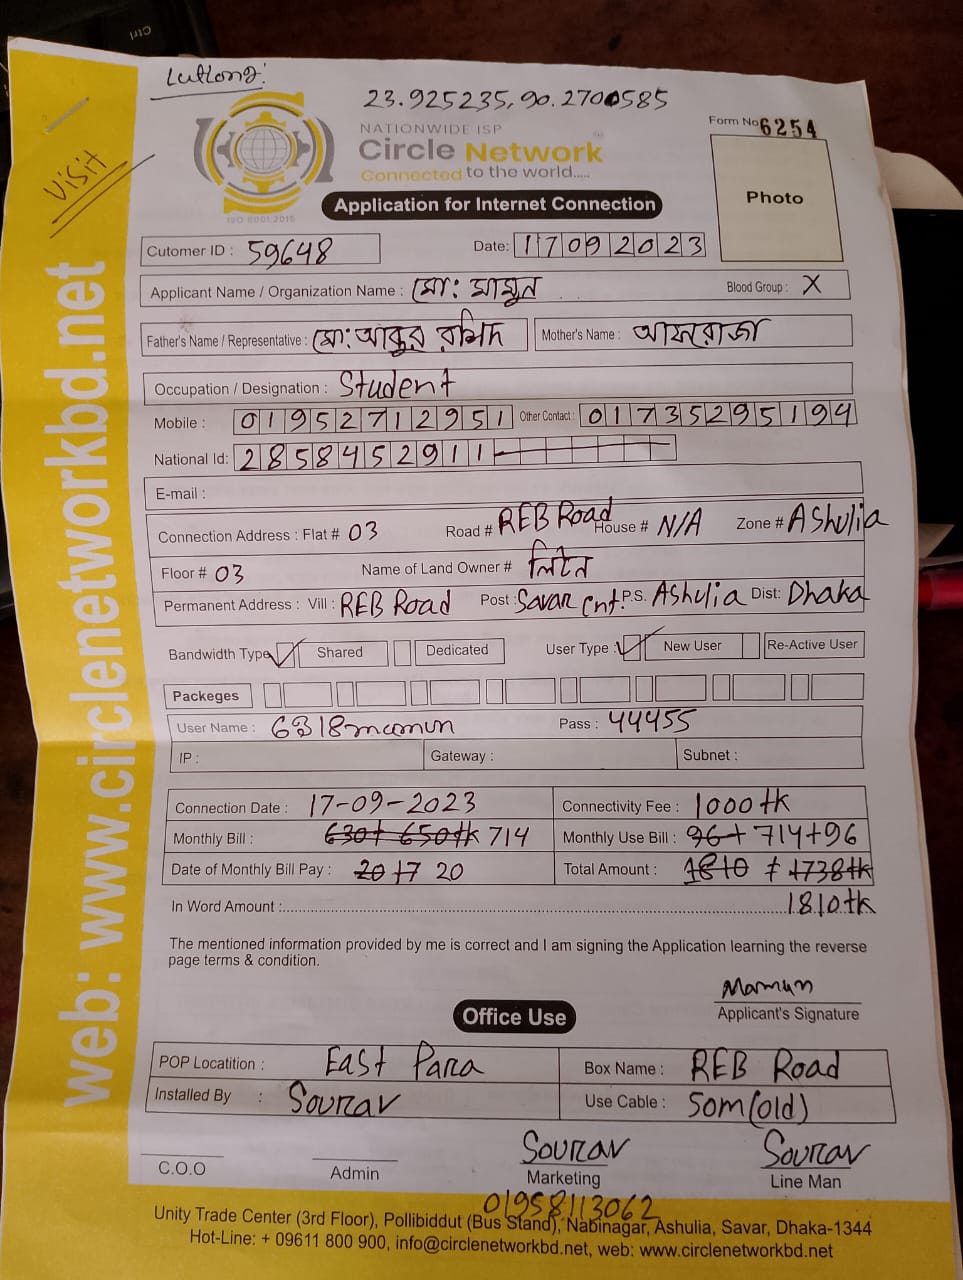 Lutlong:
23.925235, 90.2700585
VISIT
NATIONWIDE ISP
Circle Network
Connected to the world.....
ISO 9001:2015
Form No 6254
Photo
Application for Internet Connection
Cutomer ID : 59648 Date: 17092023
Applicant Name / Organization Name : মো: মামুন Blood Group : X
Father's Name / Representative : মো: আব্দুর রশিদ Mother's Name : আফরোজা
Occupation / Designation : Student
Mobile : 01952712951 Other Contact : 01735295194
National Id: 2858452911
E-mail :
Connection Address : Flat # 03 Road # REB Road House # N/A Zone # Ashulia
Floor # 03 Name of Land Owner # লিটন
Permanent Address : Vill : REB Road Post : Savar Cnt. P.S. Ashulia Dist: Dhaka
Bandwidth Type Shared Dedicated User Type : New User Re-Active User
Packeges
User Name : mamun Pass : 44455
IP : Gateway : Subnet :
Connection Date : 17-09-2023 Connectivity Fee : 1000 tk
Monthly Bill : 630+ 650tk 714 Monthly Use Bill : 96+ 714+96
Date of Monthly Bill Pay : 20 17 20 Total Amount : 1810 1738tk
In Word Amount : 1810tk
The mentioned information provided by me is correct and I am signing the Application learning the reverse
page terms & condition.
Mamun
Applicant's Signature
Office Use
POP Locatition : East Para Box Name : REB Road
Installed By : Sourav Use Cable : 50m(old)
Sourav Sourav
C.O.O Admin Marketing Line Man
01958113062
Unity Trade Center (3rd Floor), Pollibiddut (Bus Stand), Nabinagar, Ashulia, Savar, Dhaka-1344
Hot-Line: + 09611 800 900, info@circlenetworkbd.net, web: www.circlenetworkbd.net
web: www.circlenetworkbd.net
Ctrl